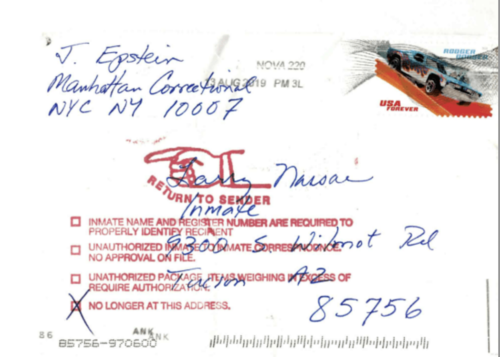 J. Epstein
Manhattan Correctional
NYC NY 10007
NOVA 220
13 AUG 2019 PM 3L
RODGER DODGER
USA
FOREVER
RETURN TO SENDER
Larry Nassar
Inmate
9300 S. Wilmot Rd
Tucson AZ
85756
INMATE NAME AND REGISTER NUMBER ARE REQUIRED TO
PROPERLY IDENTIFY RECIPIENT
UNAUTHORIZED INMATE TO INMATE CORRESPONDENCE.
NO APPROVAL ON FILE.
UNATHORIZED PACKAGE. ITEMS WEIGHING IN EXCESS OF
REQUIRE AUTHORIZATION.
X NO LONGER AT THIS ADDRESS.
86
ANK
ANK
85756-970600